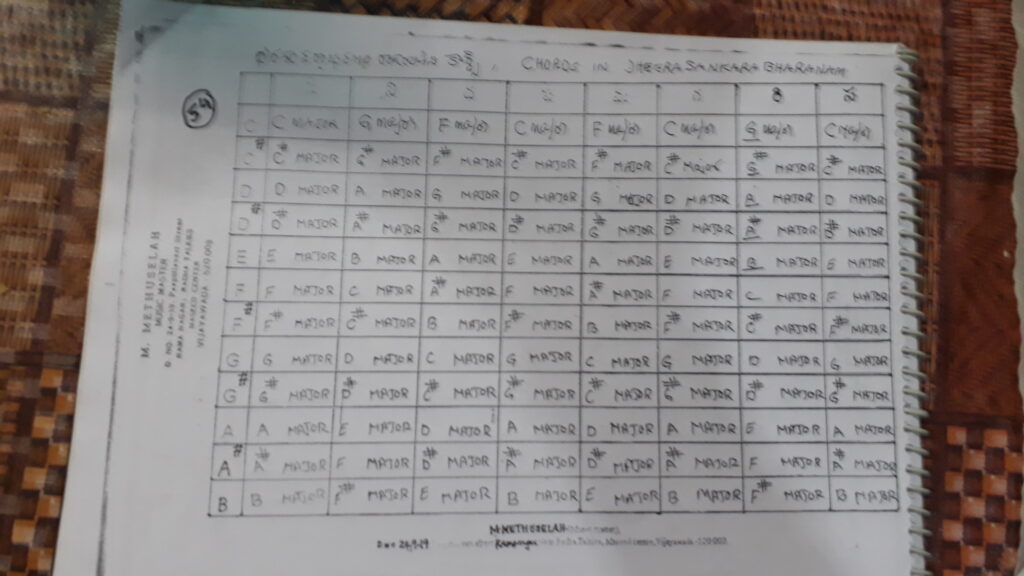 CHORDS IN DHEERASANKARABHARANAM
5th
C C MAJOR G major F major C major F major C major G major C major
C# C# MAJOR G# MAJOR F# MAJOR C# MAJOR F# MAJOR C# MAJOR G# MAJOR C# MAJOR
D D MAJOR A MAJOR G MAJOR D MAJOR G MAJOR D MAJOR A MAJOR D MAJOR
D# D# MAJOR A# MAJOR G# MAJOR D# MAJOR G# MAJOR D# MAJOR A# MAJOR D# MAJOR
E E MAJOR B MAJOR A MAJOR E MAJOR A MAJOR E MAJOR B MAJOR E MAJOR
F F MAJOR C MAJOR A# MAJOR F MAJOR A# MAJOR F MAJOR C MAJOR F MAJOR
F# F# MAJOR C# MAJOR B MAJOR F# MAJOR B MAJOR F# MAJOR C# MAJOR F# MAJOR
G G MAJOR D MAJOR C MAJOR G MAJOR C MAJOR G MAJOR D MAJOR G MAJOR
G# G# MAJOR D# MAJOR C# MAJOR G# MAJOR C# MAJOR G# MAJOR D# MAJOR G# MAJOR
A A MAJOR E MAJOR D MAJOR A MAJOR D MAJOR A MAJOR E MAJOR A MAJOR
A# A# MAJOR F MAJOR D# MAJOR A# MAJOR D# MAJOR A# MAJOR F MAJOR A# MAJOR
B B MAJOR F# MAJOR E MAJOR B MAJOR E MAJOR B MAJOR F# MAJOR B MAJOR
M. METHUSELAH
MUSIC MASTER
VIJAYAWADA - 520 003
M. METHUSELAH